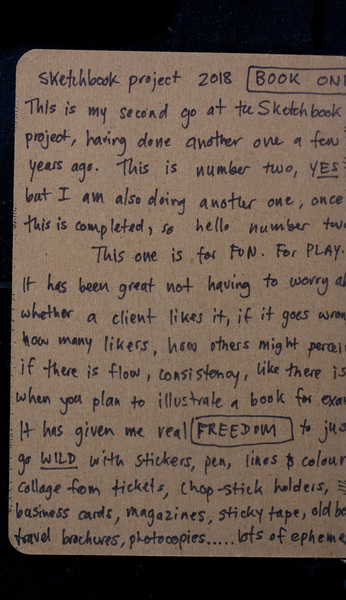 Sketchbook project 2018 BOOK ONE
This is my second go at the Sketchbook
project, having done another one a few
years ago. This is number two, YES
but I am also doing another one, once
this is completed, so hello number two
This one is for FUN. For PLAY.
It has been great not having to worry
whether a client likes it, if it goes
how many likers, how others might
if there is flow, consistency, like there is
when you plan to illustrate a book for
It has given me real FREEDOM to
go WILD with stickers, pen, lines & colour
collage from tickets, chop-stick holders,
business cards, magazines, sticky tape, old
travel brochures, photocopies..... lots of